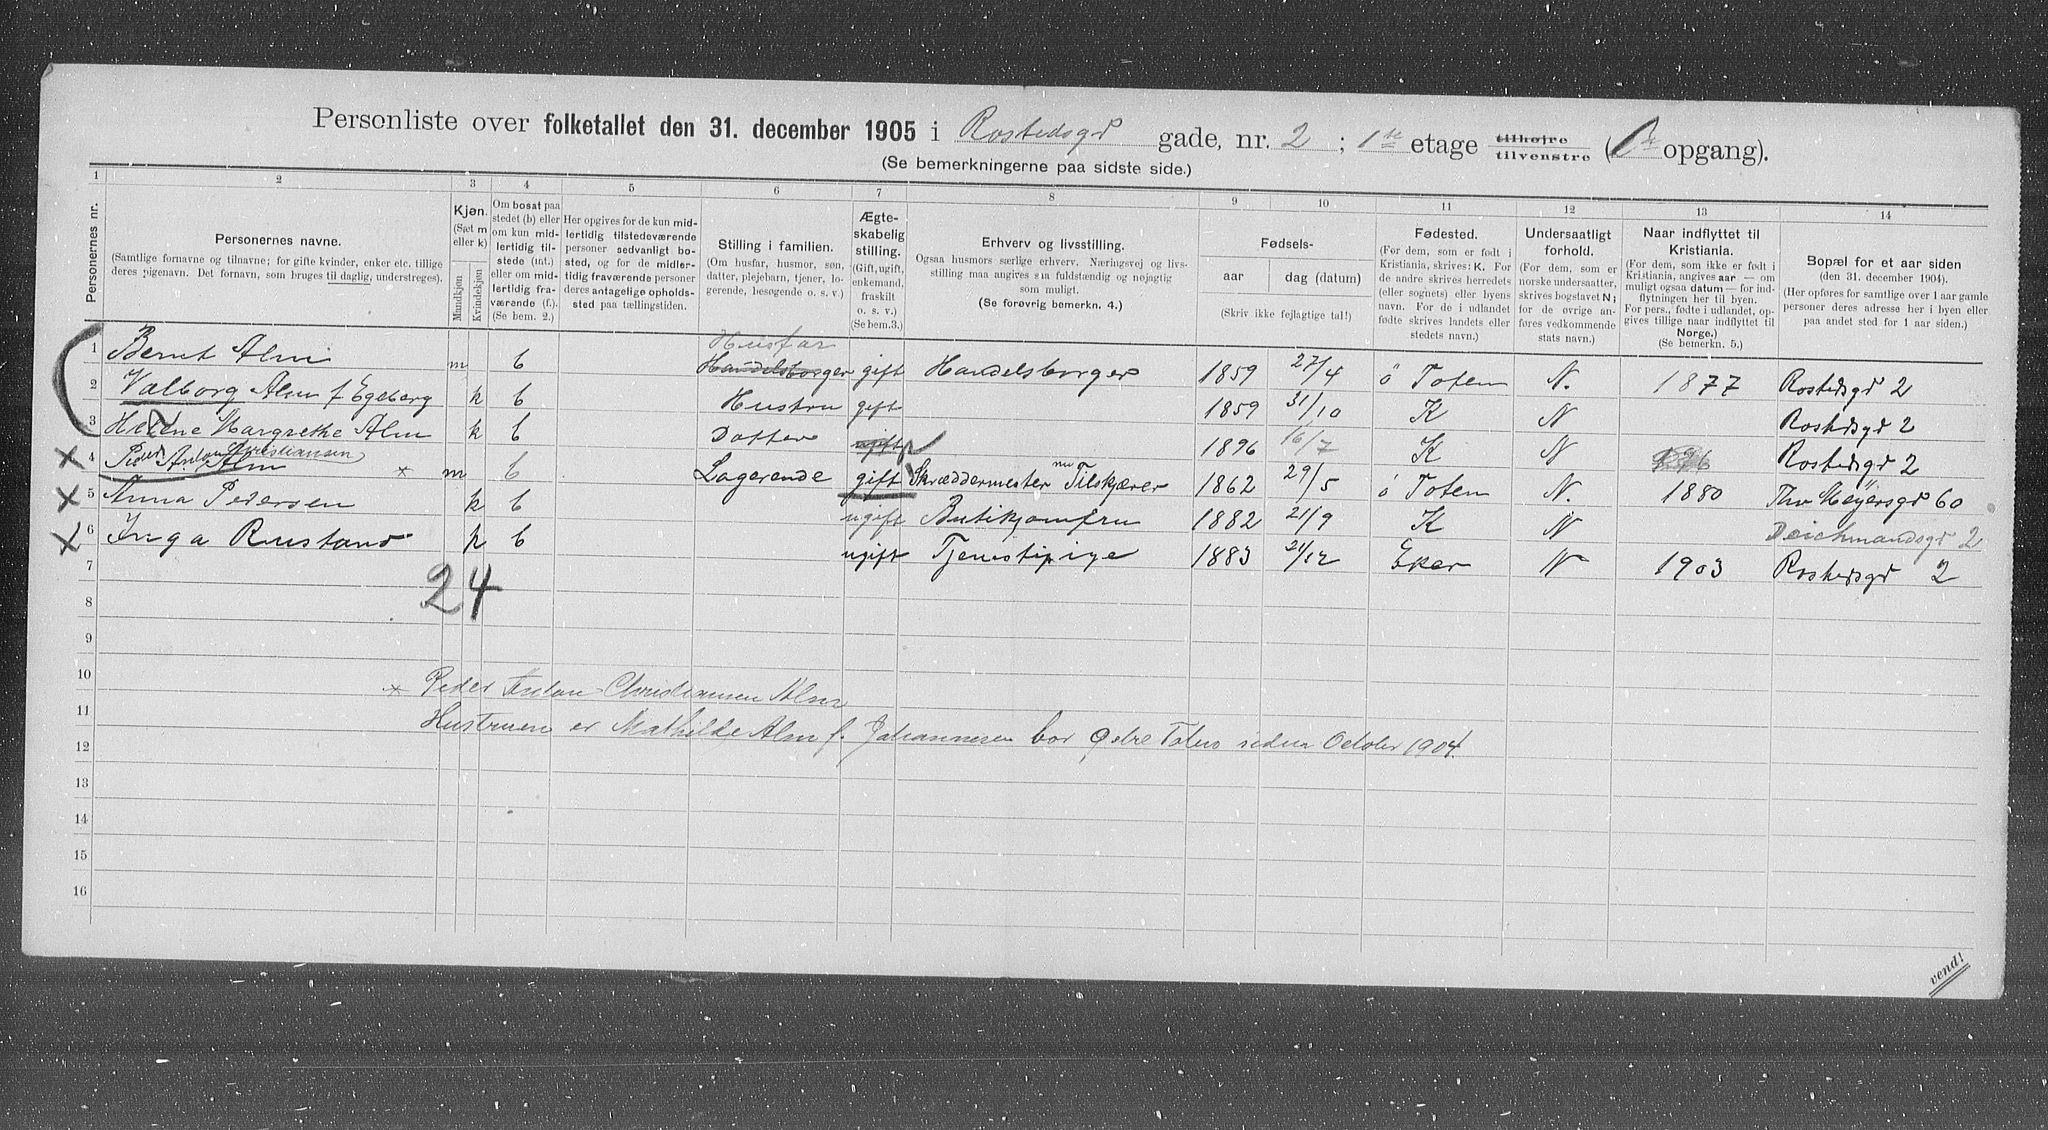 Personliste over folketallet den 31. december 1905 i Rostedsgd gade, nr. 2 ; 1ste etage tilhøjre tilvenstre ( opgang).
(Se bemerkningerne paa sidste side.)
1 2 3 4 5 6 7 8 9 10 11 12 13 14
Personernes nr.
Personernes navne.
(Samtlige fornavne og tilnavne; for gifte kvinder, enker etc. tillige deres pigenavn. Det fornavn, som bruges til daglig, understreges).
Kjøn.
(Sæt m eller k)
Mandkjøn
Kvindekjøn
Om bosat paa stedet (b) eller om kun midlertidig tilstede (mt.) eller om midlertidig fraværende (f.).
(Se bem. 2.)
Her opgives for de kun midlertidig tilstedeværende personer sedvanligt bosted, og for de midlertidig fraværende personer deres antagelige opholdssted paa tællingstiden.
Stilling i familien.
(Om husfar, husmor, søn, datter, plejebarn, tjener, logerende, besøgende o. s. v.)
Ægteskabelig stilling.
(Gift, ugift, enkemand, fraskilt o. s. v.)
(Se bem.3.)
Erhverv og livsstilling.
Ogsaa husmors særlige erhverv. Næringsvej og livsstilling maa angives saa fuldstændig og nøjagtig som muligt.
(Se forøvrig bemerkn. 4.)
Fødsels-
aar dag (datum)
(Skriv ikke fejlagtige tal!)
Fødested.
(For dem, som er født i Kristiania, skrives: K. For de andre skrives herredets (eller sognets) eller byens navn. For de i udlandet fødte skrives landets eller stedets navn.)
Undersaatligt forhold.
(For dem, som er norske undersaatter, skrives bogstavet N; for de øvrige anføres vedkommende stats navn.)
Naar indflyttet til Kristiania.
(For dem, som ikke er født i Kristiania, angives aar — om muligt ogsaa datum — for indflytningen her til byen. For pers., født i udlandet, opgives tillige naar indflyttet til Norge.)
(Se bemerkn. 5.)
Bopæl for et aar siden
(den 31. december 1904).
(Her opføres for samtlige over 1 aar gamle personer deres adresse her i byen eller paa andet sted for 1 aar siden.)
Husfar
1 Bernt Alm m b Handelsborger gift Handelsborger 1859 27/4 ö Toten N. 1877 Rostedsgd 2
2 Valborg Alm f Egeberg k b Hustru gift 1859 31/10 K N Rostedsgd 2
3 Helene Margrethe Alm k b Datter ugift 1896 16/7 K N Rostedsgd 2
Christiansen
4 Peder Anton Alm * m b Logerende gift Skræddermester nu Tilskjærer 1862 29/5 ö Toten N. 1880 Thv Meyersgd 60
5 Anna Pedersen k b ugift Butikjomfru 1882 21/9 K N Deichmandsgd 2
6 Inga Rustand k b ugift Tjenestepige 1883 21/12 Eker N 1903 Rostedsgd 2
7
24
8
9
10
* Peder Anton Christiansen Alm
11
Hustruen er Mathilde Alm f. Johannesen bor Østre Toten siden October 1904.
12
13
14
15
16
vend!